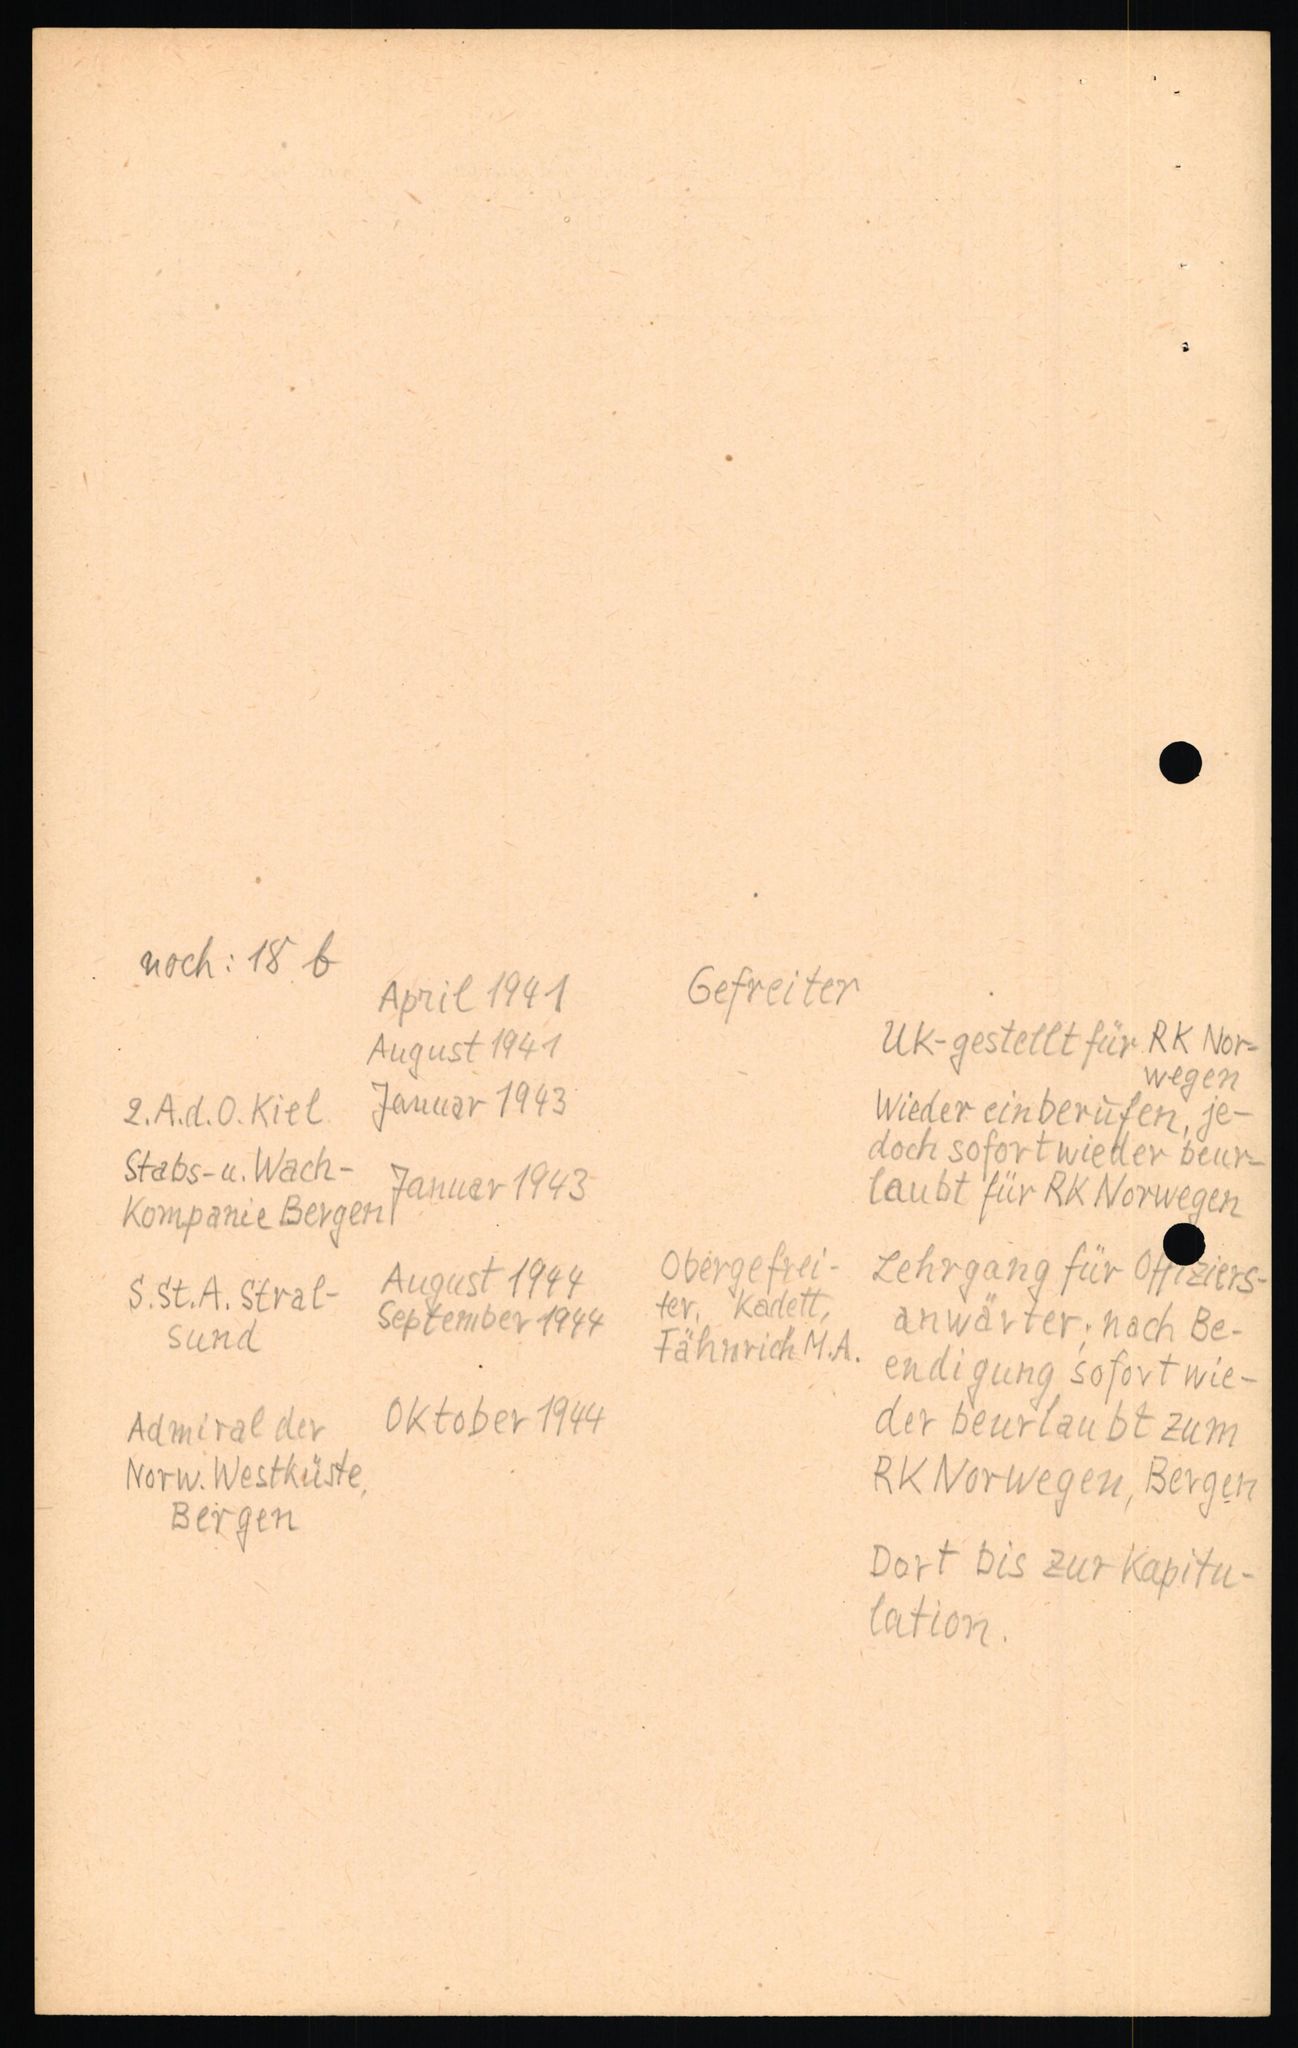 noch: 18 b
April 1941
Gefreiter
August 1941
UK-gestellt für RK Nor-
wegen
2.A.d.O. Kiel
Januar 1943
Wieder einberufen, je-
doch sofort wieder beur-
laubt für RK Norwegen
Stabs- u. Wach-
Kompanie Bergen
Januar 1943
S.St.A. Stral-
sund
August 1944
September 1944
Obergefrei-
ter, Kadett,
Fähnrich M.A.
Lehrgang für Offiziers-
anwärter; nach Be-
endigung sofort wie-
der beurlaubt zum
RK Norwegen, Bergen
Admiral der
Norw. Westküste,
Bergen
Oktober 1944
Dort bis zur Kapitu-
lation.